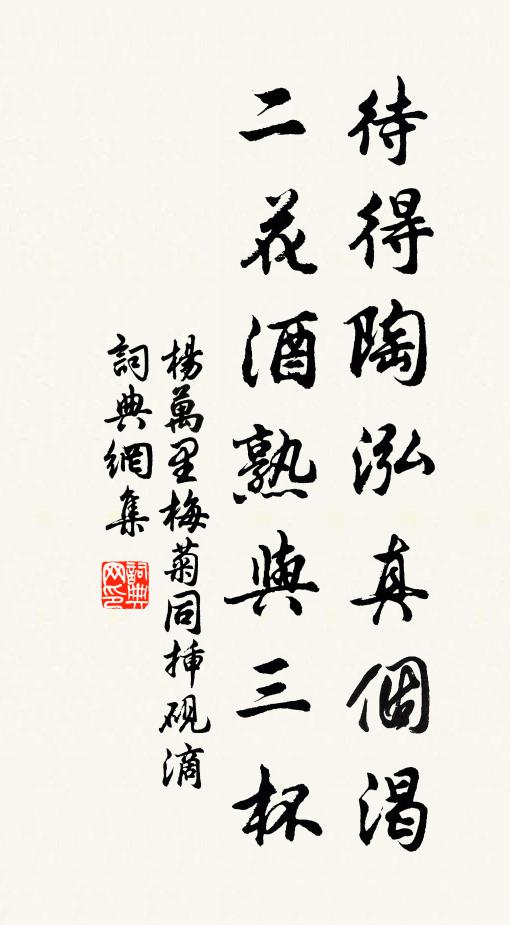 待得陶泓真個渴
二花酒熟與三杯
楊萬里梅菊同插硯滴
詞典網集
詞典網印